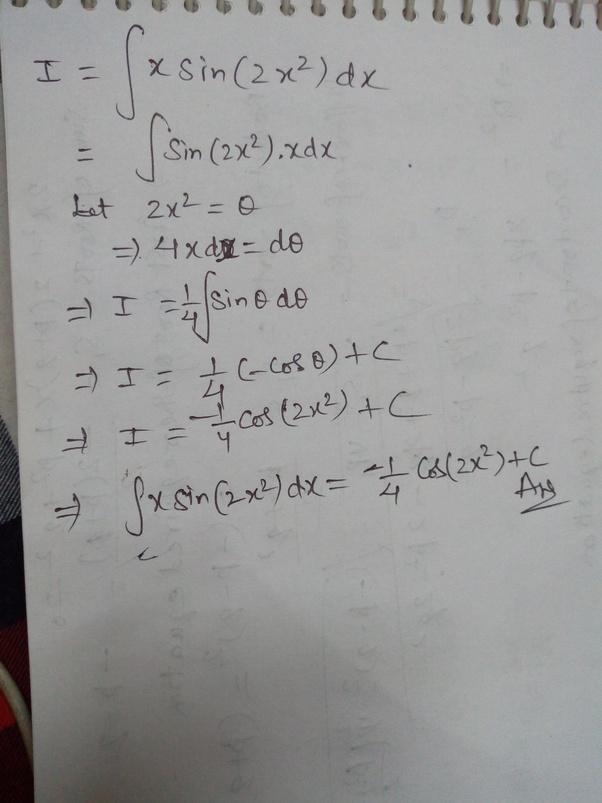 I = ∫x sin(2x²)dx
= ∫sin(2x²).xdx
Let 2x² = θ
⇒ 4xdx = dθ
⇒ I = 1/4 ∫sinθ dθ
⇒ I = 1/4 (-cosθ)+C
⇒ I = -1/4 cos(2x²)+C
⇒ ∫x sin(2x²)dx = -1/4 cos(2x²)+C
Ans